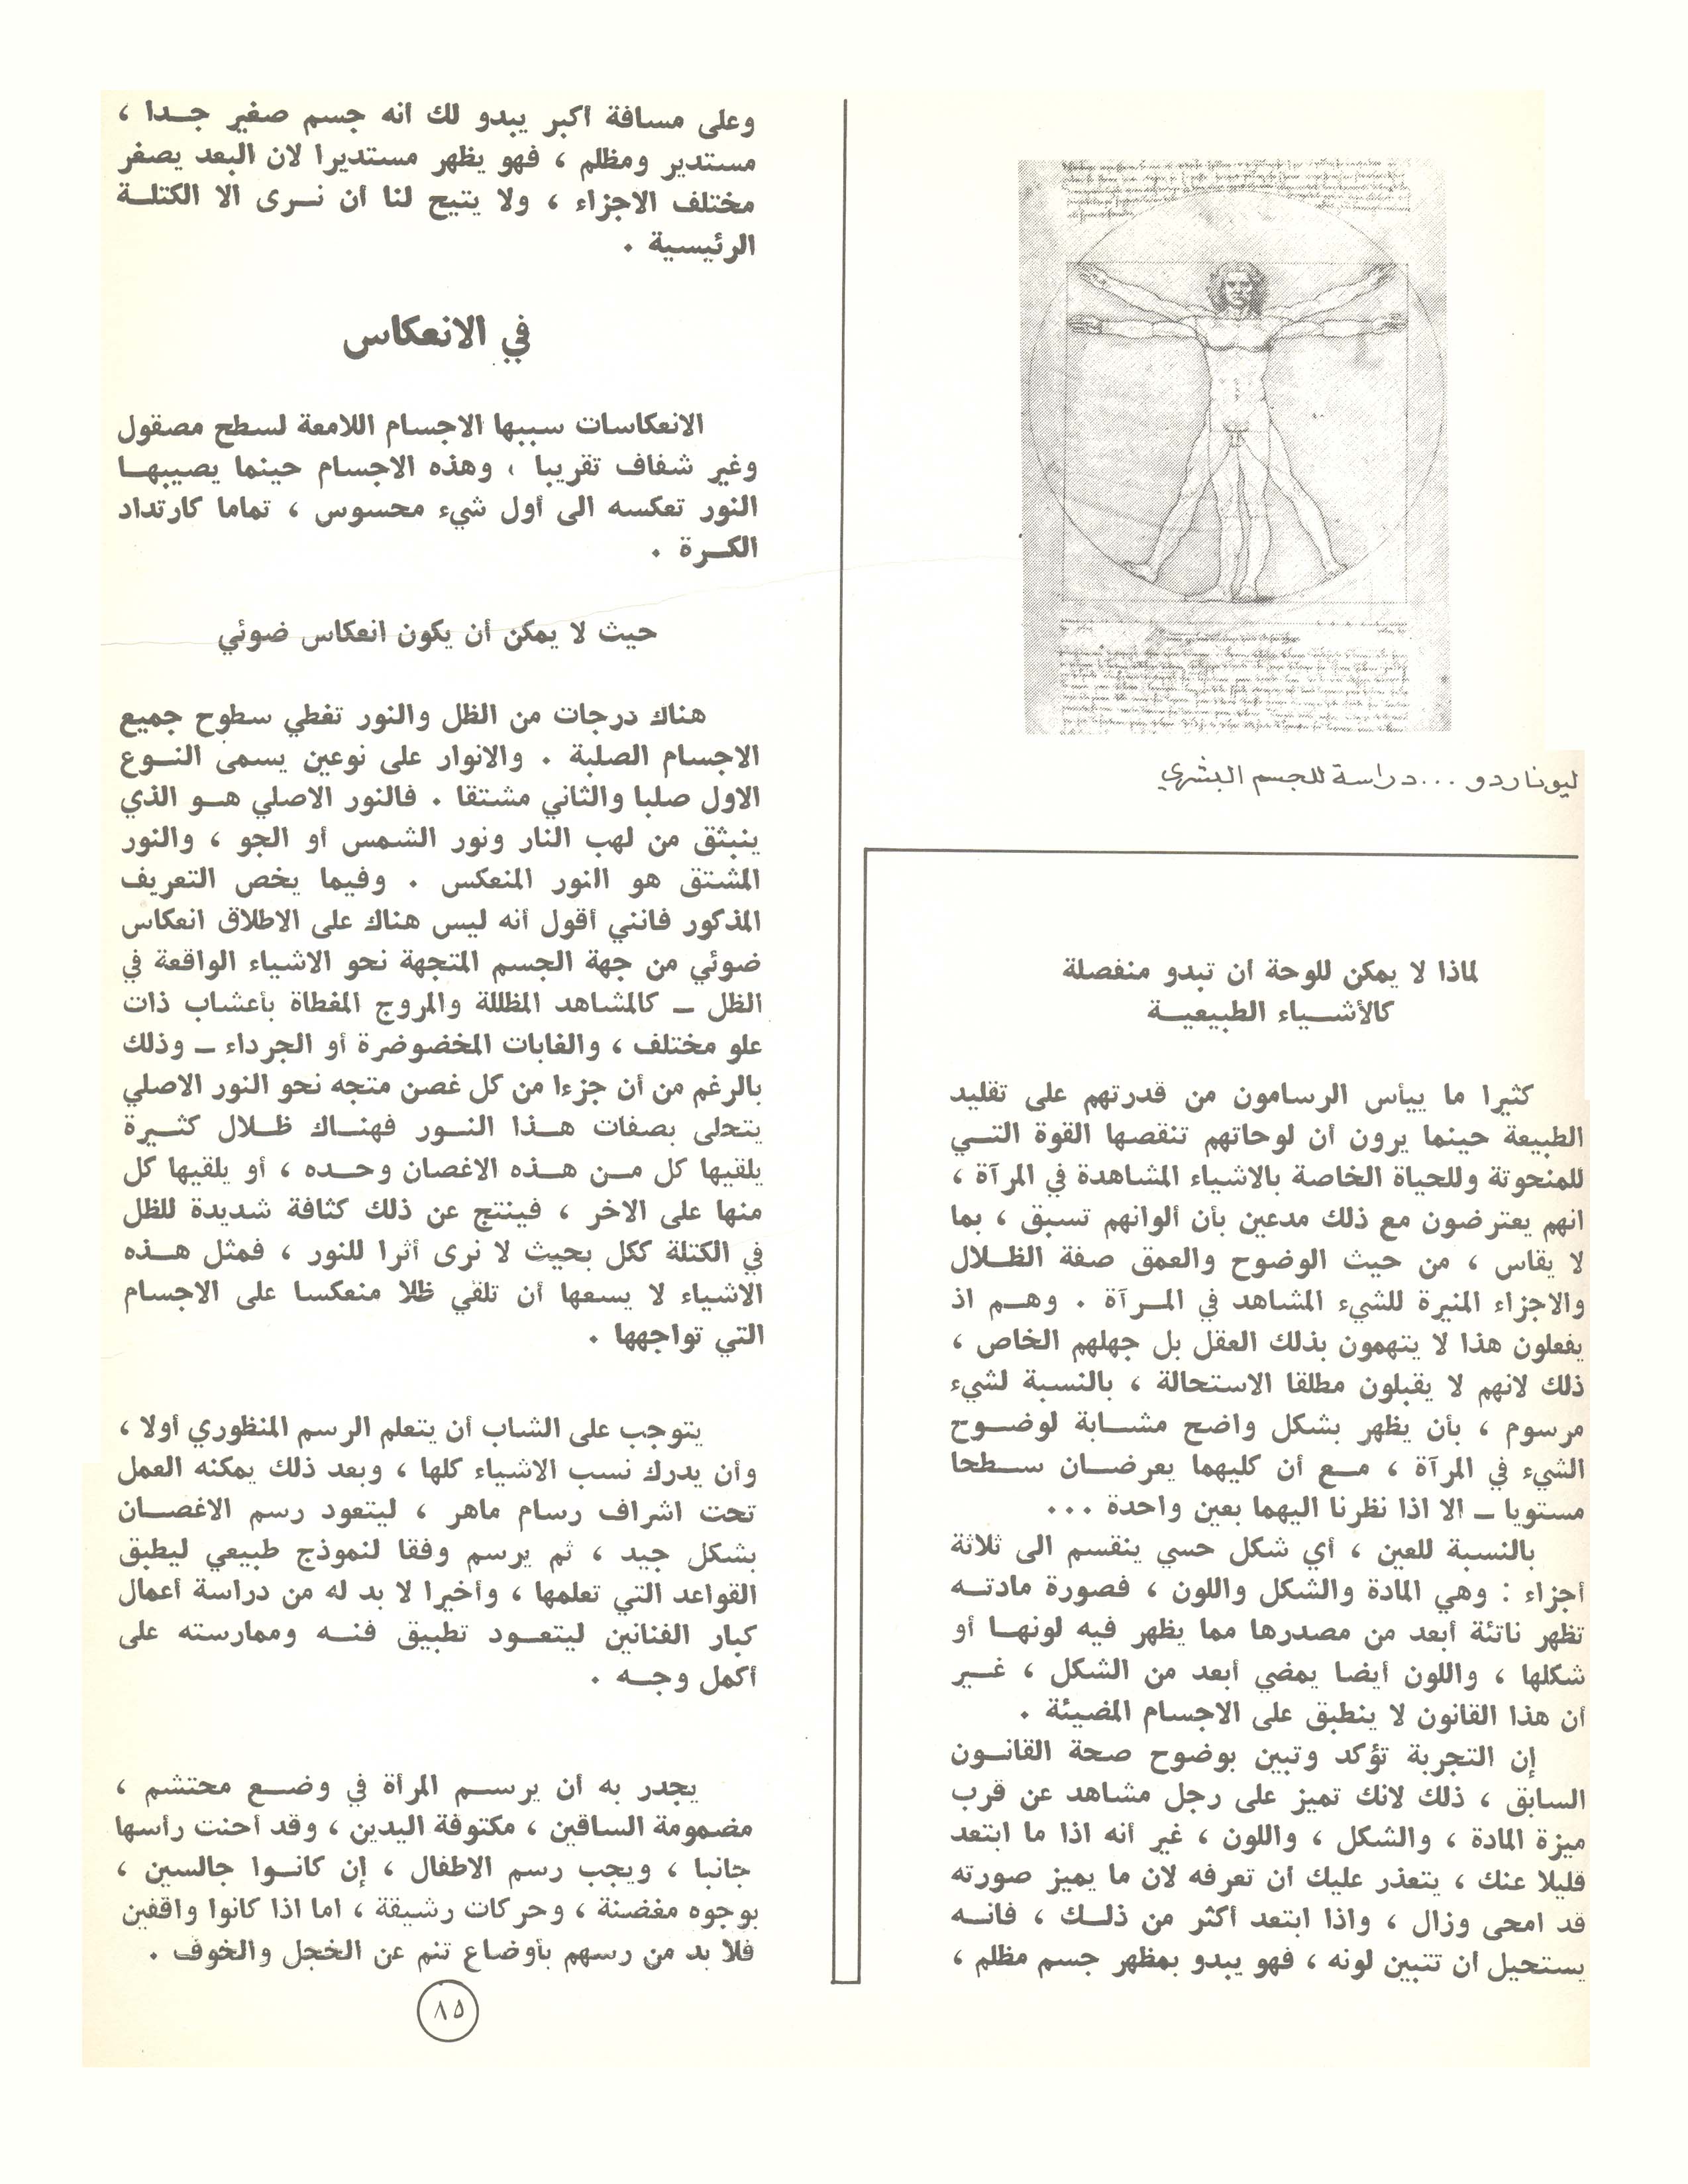 ليوناردو ...دراسة للجسم البشري
لماذا لا يمكن للوحة ان تبدو منفصلة
كالأشـــياء الطبيعيـــة
كثيرا ما ييأس الرسامون من قدرتهم على تقليد
الطبيعة حينما يرون أن لوحاتهم تنقصها القوة التــي
للمنحوتة وللحياة الخاصة بالاشياء المشاهدة في المرآة ،
انهم يعترضون مع ذلك مدعين بأن ألوانهم تسبق ، بما
لا يقاس ، من حيث الوضوح والعمق صفة الظــلال
والاجزاء المنيرة للشيء المشاهد في المــرآة . وهــم اذ
يفعلون هذا لا يتهمون بذلك العقل بل جهلهم الخاص ،
ذلك لانهم لا يقبلون مطلقا الاستحالة ، بالنسبة لشيء
مرسوم ، بأن يظهر بشكل واضح مشــابة لوضــوح
الشيء في المرآة ، مــع أن كليهما يعرضــان ســطحا
مستويا ــ الا اذا نظرنا اليهما بعين واحدة ...
بالنسبة للعين ، أي شكل حسي ينقسم الى ثلاثة
أجزاء : وهي المادة والشكل واللون ، فصورة مادتــه
تظهر ناتئة أبعد من مصدرها مما يظهر فيه لونهــا أو
شكلها ، واللون أيضا يمضي أبعد من الشكل ، غــير
أن هذا القانون لا ينطبق على الاجسام المضيئة .
إن التجربة تؤكد وتبين بوضوح صحة القانــون
السابق ، ذلك لانك تميز على رجل مشاهد عن قرب
ميزة المادة ، والشكل ، واللون ، غير أنه اذا ما ابتعد
قليلا عنك ، يتعذر عليك ان تعرفه لان ما يميز صورته
قد امحى وزال ، واذا ابتعد أكثر من ذلــك ، فانــه
يستحيل ان تتبين لونه ، فهو يبدو بمظهر جسم مظلم ،
وعلى مسافة أكبر يبدو لك انه جسم صغير جــدا ،
مستدير ومظلم ، فهو يظهر مستديرا لان البعد يصغر
مختلف الاجزاء ، ولا يتيح لنا ان نــرى الا الكتلــة
الرئيسية .
في الانعكاس
الانعكاسات سببها الاجسام اللامعة لسطح مصقول
وغير شفاف تقريبا ، وهذه الاجسام حينما يصيبهــا
النور تعكسه الى أول شيء محسوس ، تماما كارتداد
الكــرة .
حيث لا يمكن أن يكون انعكاس ضوئي
هناك درجات من الظل والنور تغطي سطوح جميع
الاجسام الصلبة . والانوار على نوعين يسمى النــوع
الاول صلبا والثاني مشتقا . فالنور الاصلي هــو الذي
ينبثق من لهب النار ونور الشمس أو الجو ، والنور
المشتق هو النور المنعكس . وفيما يخص التعريف
المذكور فانني أقول أنه ليس هناك على الاطلاق انعكاس
ضوئي من جهة الجسم المتجهة نحو الاشياء الواقعة في
الظل ــ كالمشاهد المظللة والمروج المغطاة بأعشاب ذات
علو مختلف ، والغابات المخضوضرة أو الجرداء ــ وذلك
بالرغم من أن جزءا من كل غصن متجه نحو النور الاصلي
يتحلى بصفات هــذا النــور فهنــاك ظــلال كثــيرة
يلقيها كل مــن هــذه الاغصان وحــده ، أو يلقيها كل
منها على الاخر ، فينتج عن ذلك كثافة شديدة للظل
في الكتلة ككل بحيث لا نرى أثرا للنور ، فمثل هــذه
الاشياء لا يسعها أن تلقي ظلا منعكسا على الاجسام
التي تواجهها .
يتوجب على الشاب أن يتعلم الرسم المنظوري أولا ،
وأن يدرك نسب الاشياء كلها ، وبعد ذلك يمكنه العمل
تحت اشراف رسام ماهر ، ليتعود رسم الاغصــان
بشكل جيد ، ثم يرسم وفقا لنموذج طبيعي ليطبق
القواعد التي تعلمها ، وأخيرا لا بد له من دراسة أعمال
كبار الفنانين ليتعــود تطبيق فنــه وممارسته على
أكمل وجــه .
يجدر به أن يرســم المرأة في وضــع محتشم ،
مضمومة الساقين ، مكتوفة اليدين ، وقد أحنت رأسها
جانبا ، ويجب رسم الاطفال ، إن كانــوا جالسين ،
بوجوه مغضنة ، وحركات رشيقة ، اما اذا كانوا واقفين
فلا بد من رسهم بأوضاع تنم عن الخجل والخوف .
٨٥